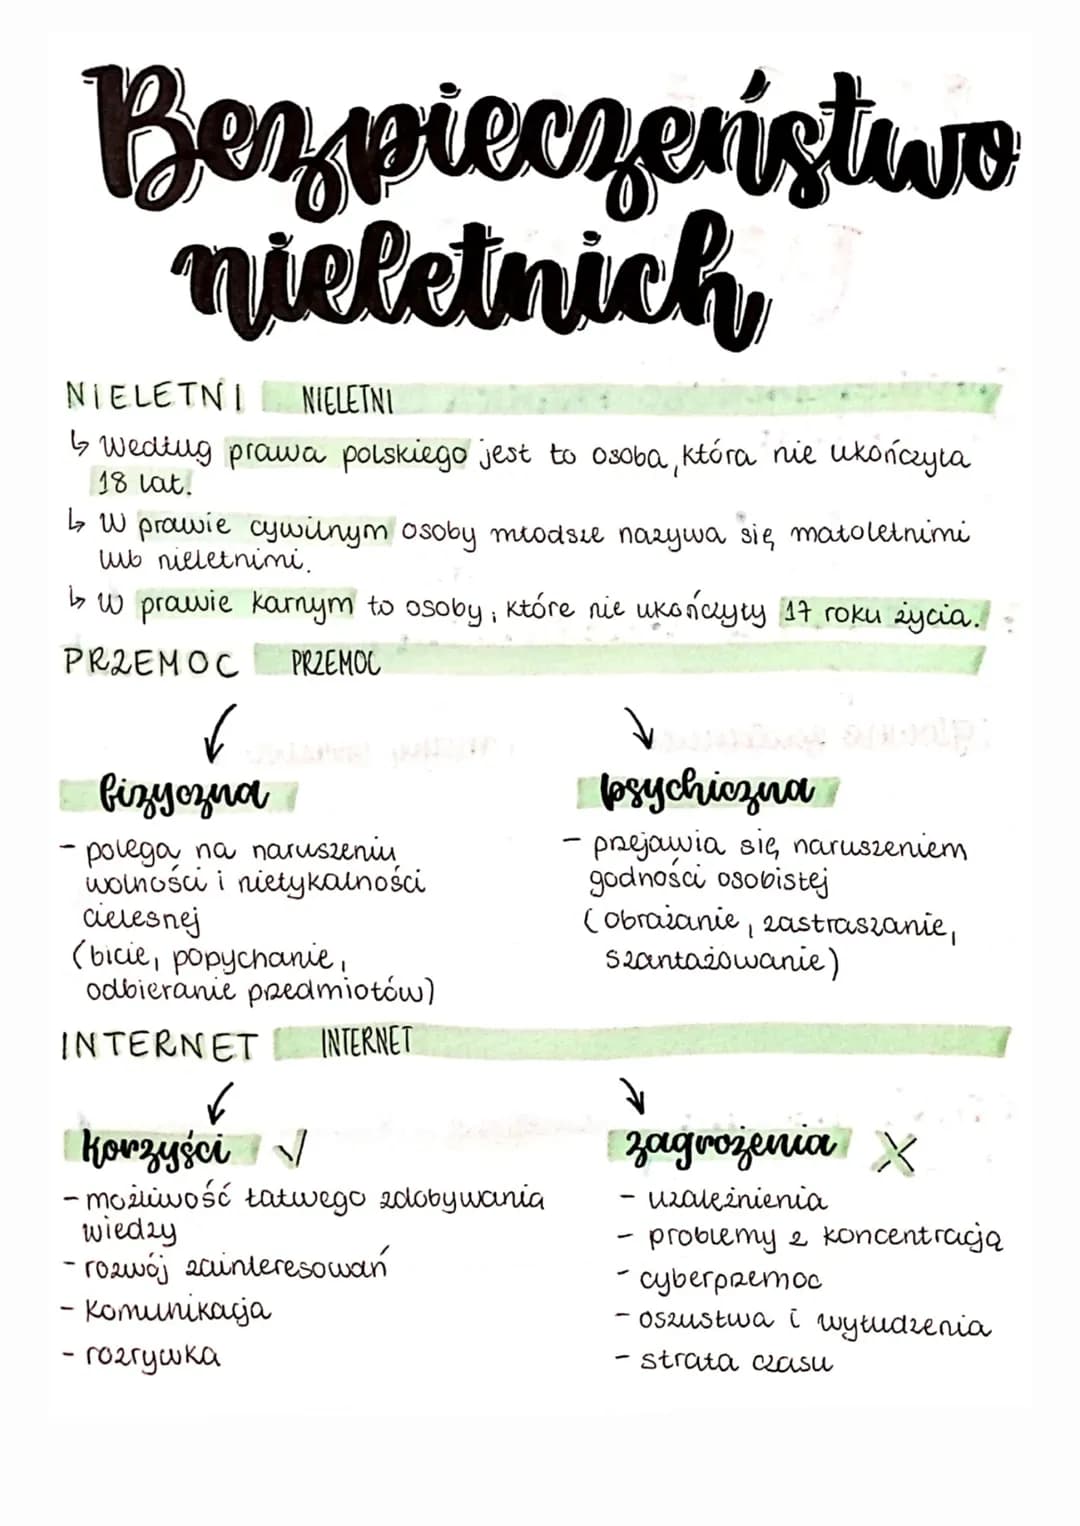 Bezpieczeństwo
nieletnich
NIELETNI NIELETNI
↳ Według prawa polskiego jest to osoba, która nie ukończyła
18 lat.
↳ W prawie cywilnym osoby młodsze nazywa się małoletnimi
lub nieletnimi.
↳ W prawie karnym to osoby, które nie ukończyły 17 roku życia.
PRZEMOC PRZEMOC
fizyczna
- polega na naruszeniu
wolności i nietykalności
cielesnej
(bicie, popychanie,
odbieranie przedmiotów)
psychiczna
- przejawia się naruszeniem
godności osobistej
(obrażanie, zastraszanie,
szantażowanie)
INTERNET INTERNET
korzyści ✓
- możliwość łatwego zdobywania
wiedzy
- rozwój zainteresowań
- komunikacja
- rozrywka
zagrożenia X
- uzależnienia
- problemy z koncentracją
- cyberprzemoc
- oszustwa i wyłudzenia
- strata czasu